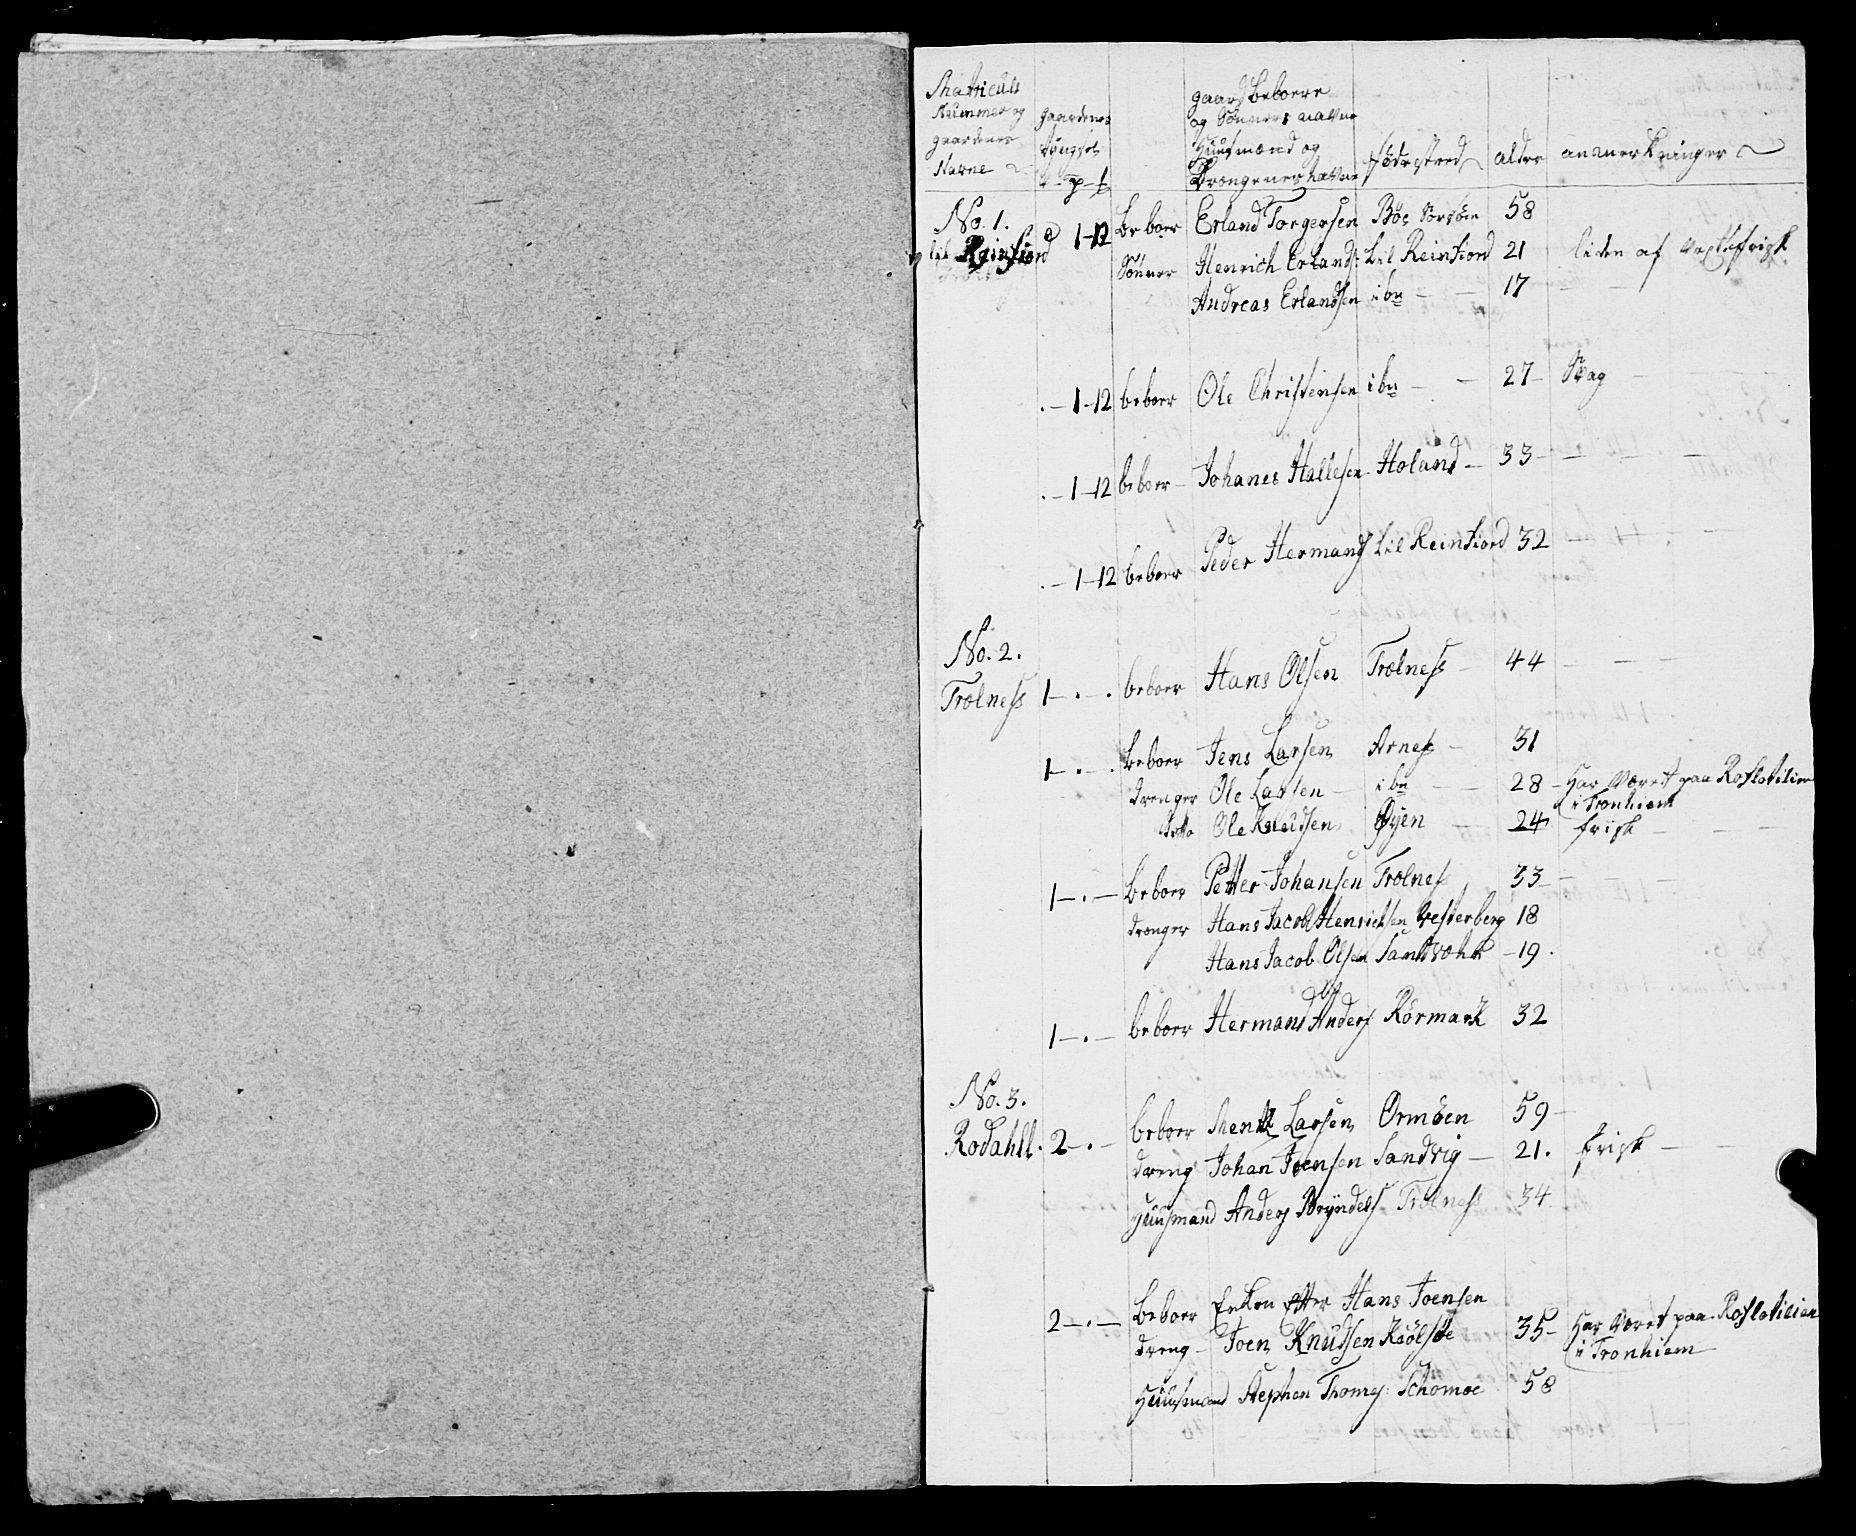 Matriculs Nummer og gaardenes Navne | gaardenes | gaards Beboere og Sönners navne Huusmænd og Drængenes navne | födestæd | alder | anmerkninger
No. 1. 1-12 Beboer Erland Torgersen Böe 58
lil Reinfiord Sönner Henrich Erlands: Lil Reinfiord 21 liden af Vext frisk
Andreas Erlandsen ibn - - 17
. - 1-12 beboer Ole Christensen ibn - - 27 - Svag
. - 1-12 beboer - Johanes Hallesen Holand - 33 -
. - 1-12 beboer Peder Hermands Lil Reinfiord 32
No. 2.
Trolness 1 - . - . beboer Hans Olsen Trolness - 44
1 - . - . Beboer Jens Larsen Arness - 31
drenger Ole Larsen - ibn - - 28 - Har Været paa Roflotilien
i Tronhiem
ditto Ole Knudsen Øyen - 24 frisk
1 - . - Beboer Petter Johansen Trolness 33
drenger Hans Jacob Henrichsen Vesterberg 18
Hans Jacob Olsen Sandvohr - 19.
1 - . - beboer Hermand Anders: Rörmark 32
No. 3.
Rodahll. 2 - . - beboer Mentz Larsen Ormöen 59 -
dreng Johan Joensen Sandvig - 21. frisk -
Huusmand Anders Bryndels Trolness 34
2 - . - Beboer Enken Etter Hans Joensen
dreng - Joen Knudsen Kiölsöe 35 - Har Været paa Roflotilien
i Tronhiem
Huusmand Stephen Thomes: Schomoe 58